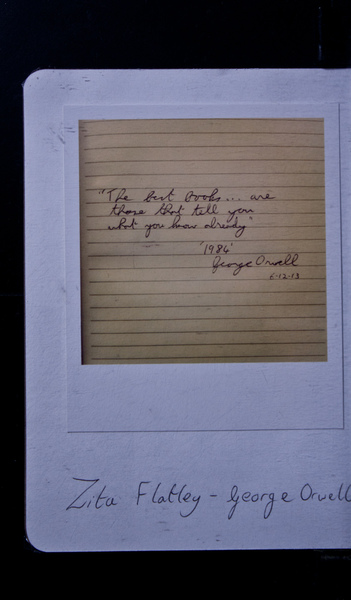 "The best books... are
those that tell you
what you know already"
'1984'
George Orwell
6-12-13
Zita Flatley - George Orwell